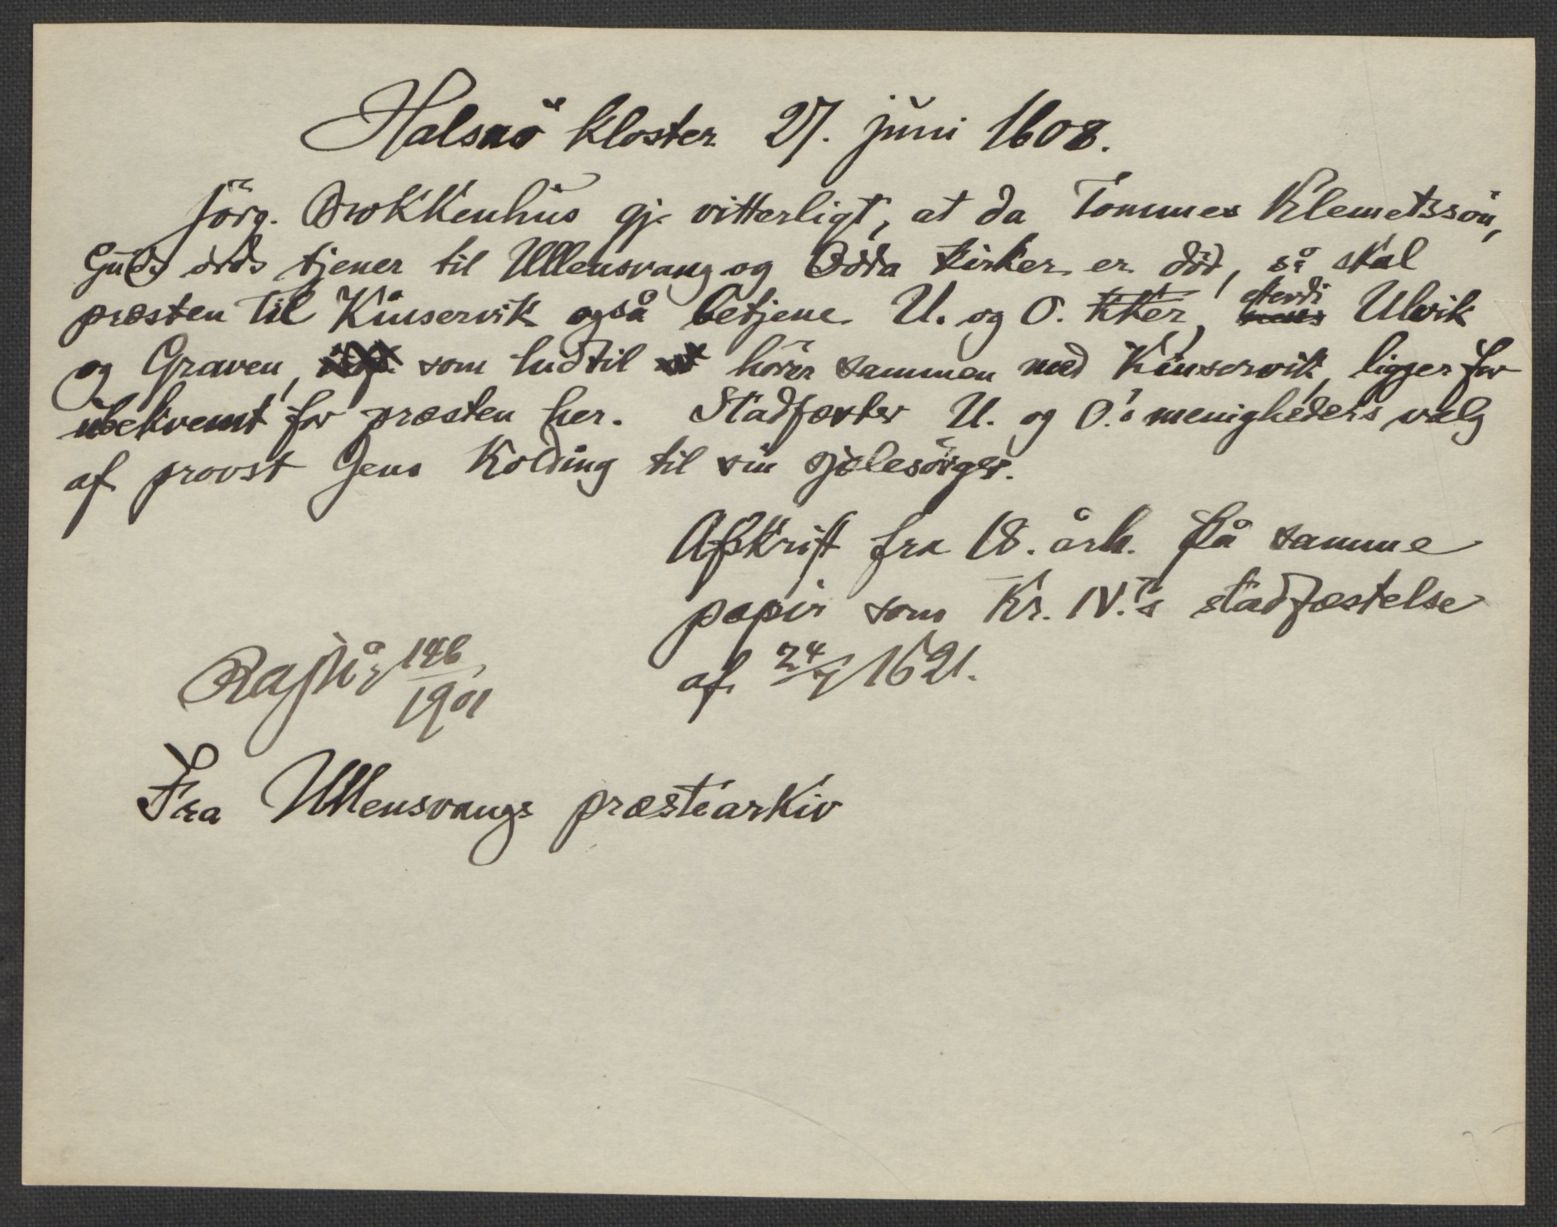 Halsnö kloster 27. juni 1608.
Jörg. Brokkenhus gj. vitterligt, at da Tommes Klemetssön,
Guds ords tjener til Ullensvang og Odda kirker er död, så skal
præsten til Kinservik også betjene U. og O. kker, efterdi Ulvik
og Graven, som hidtil hörer sammen med Kinservik, ligger for
ubekvemt for præsten her. Stadfæster U. og O.'s menigheders valg
af provst Jens Kolding til sin sjælesörger.
Afskrift fra 18. årh. På samme
papir som Kr. IV.'s stadfæstelse
af 24/7 1621.
146/1901
Fra Ullensvangs præstearkiv